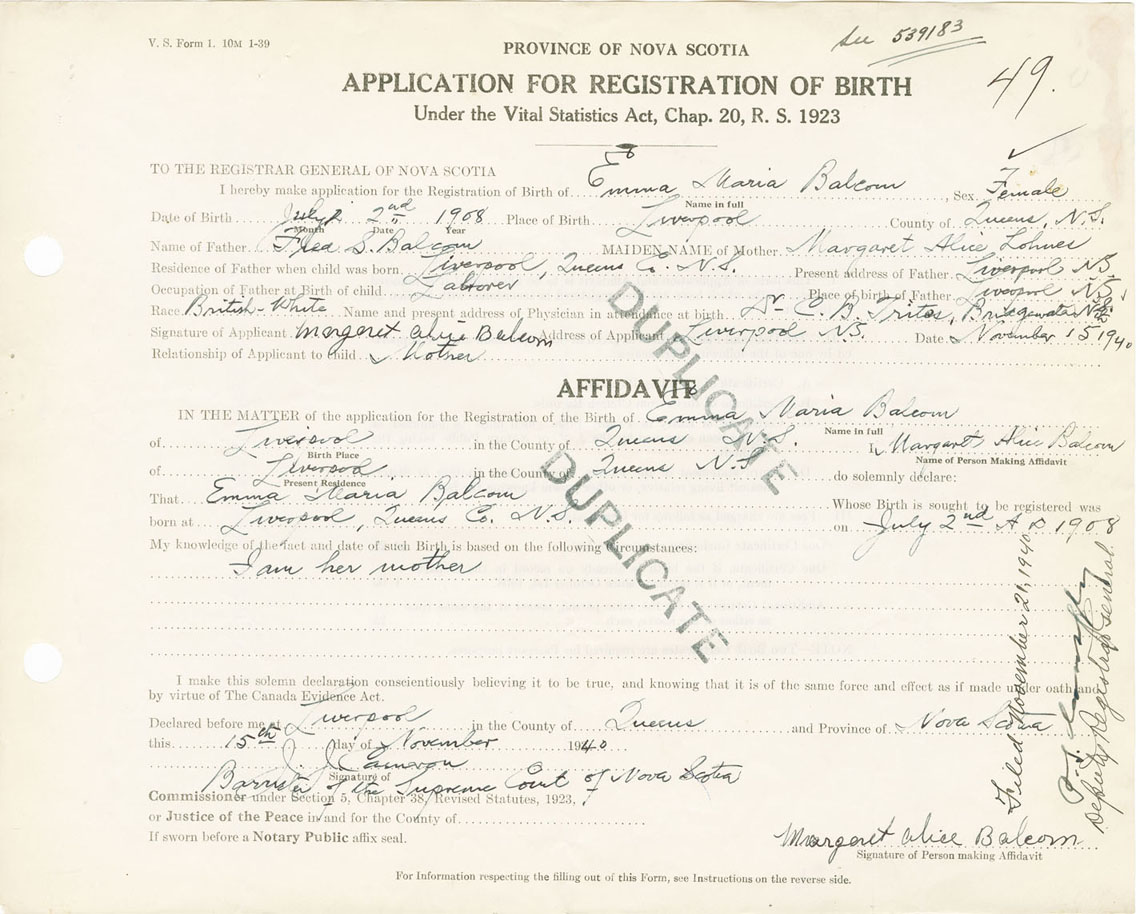 V. S. Form 1. 10M 1-39
See 539183
49.
PROVINCE OF NOVA SCOTIA
APPLICATION FOR REGISTRATION OF BIRTH
Under the Vital Statistics Act, Chap. 20, R. S. 1923
TO THE REGISTRAR GENERAL OF NOVA SCOTIA
I hereby make application for the Registration of Birth of Emma Maria Balcom, Sex Female
Name in full
Date of Birth July 2nd 1908 Place of Birth Liverpool County of Queens, N.S.
Month Date Year
Name of Father Fred S. Balcom MAIDEN NAME of Mother Margaret Alice Lohnes
Residence of Father when child was born Liverpool, Queens Co. N.S. Present address of Father Liverpool NS.
Occupation of Father at Birth of child Laborer Place of birth of Father Liverpool NS.
Race British-White Name and present address of Physician in attendance at birth Dr C. B. Trites, Bridgewater N.S.
Signature of Applicant Margaret Alice Balcom Address of Applicant Liverpool N.S. Date November 15 1940
Relationship of Applicant to child Mother
AFFIDAVIT
IN THE MATTER of the application for the Registration of the Birth of Emma Maria Balcom
Name in full
of Liverpool in the County of Queens N.S. I, Margaret Alice Balcom
Birth Place
Name of Person Making Affidavit
of Liverpool in the County of Queens N.S do solemnly declare:
Present Residence
That Emma Maria Balcom Whose Birth is sought to be registered was
born at Liverpool, Queens Co. N.S. on July 2nd A D 1908
My knowledge of the fact and date of such Birth is based on the following Circumstances:
I am her mother
DUPLICATE
DUPLICATE
I make this solemn declaration conscientiously believing it to be true, and knowing that it is of the same force and effect as if made under oath and
by virtue of The Canada Evidence Act.
Declared before me at Liverpool in the County of Queens and Province of Nova Scotia
this 15th day of November 1940
J. J. Cameron
Signature of
Barrister of the Supreme Court of Nova Scotia
Commissioner under Section 5, Chapter 38, Revised Statutes, 1923,
or Justice of the Peace in and for the County of
If sworn before a Notary Public affix seal.
Margaret Alice Balcom
Signature of Person making Affidavit
For Information respecting the filling out of this Form, see Instructions on the reverse side.
Filed November 21, 1940
Deputy Registrar General.